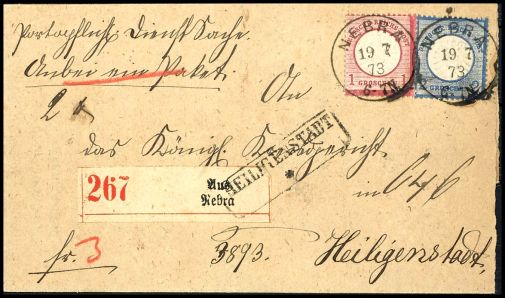 Portopflicht. Dienst Sache.
Anbei ein Paket.
An
das Königl. Kreisgericht
in
Heiligenstadt.
267
Aus
Nebra
HEILIGENSTADT
fr. 3
3893.
NEBRA
19 7
73
6-7N
1 GROSCHEN 1
NEBRA
19 7
73
GROSCHEN